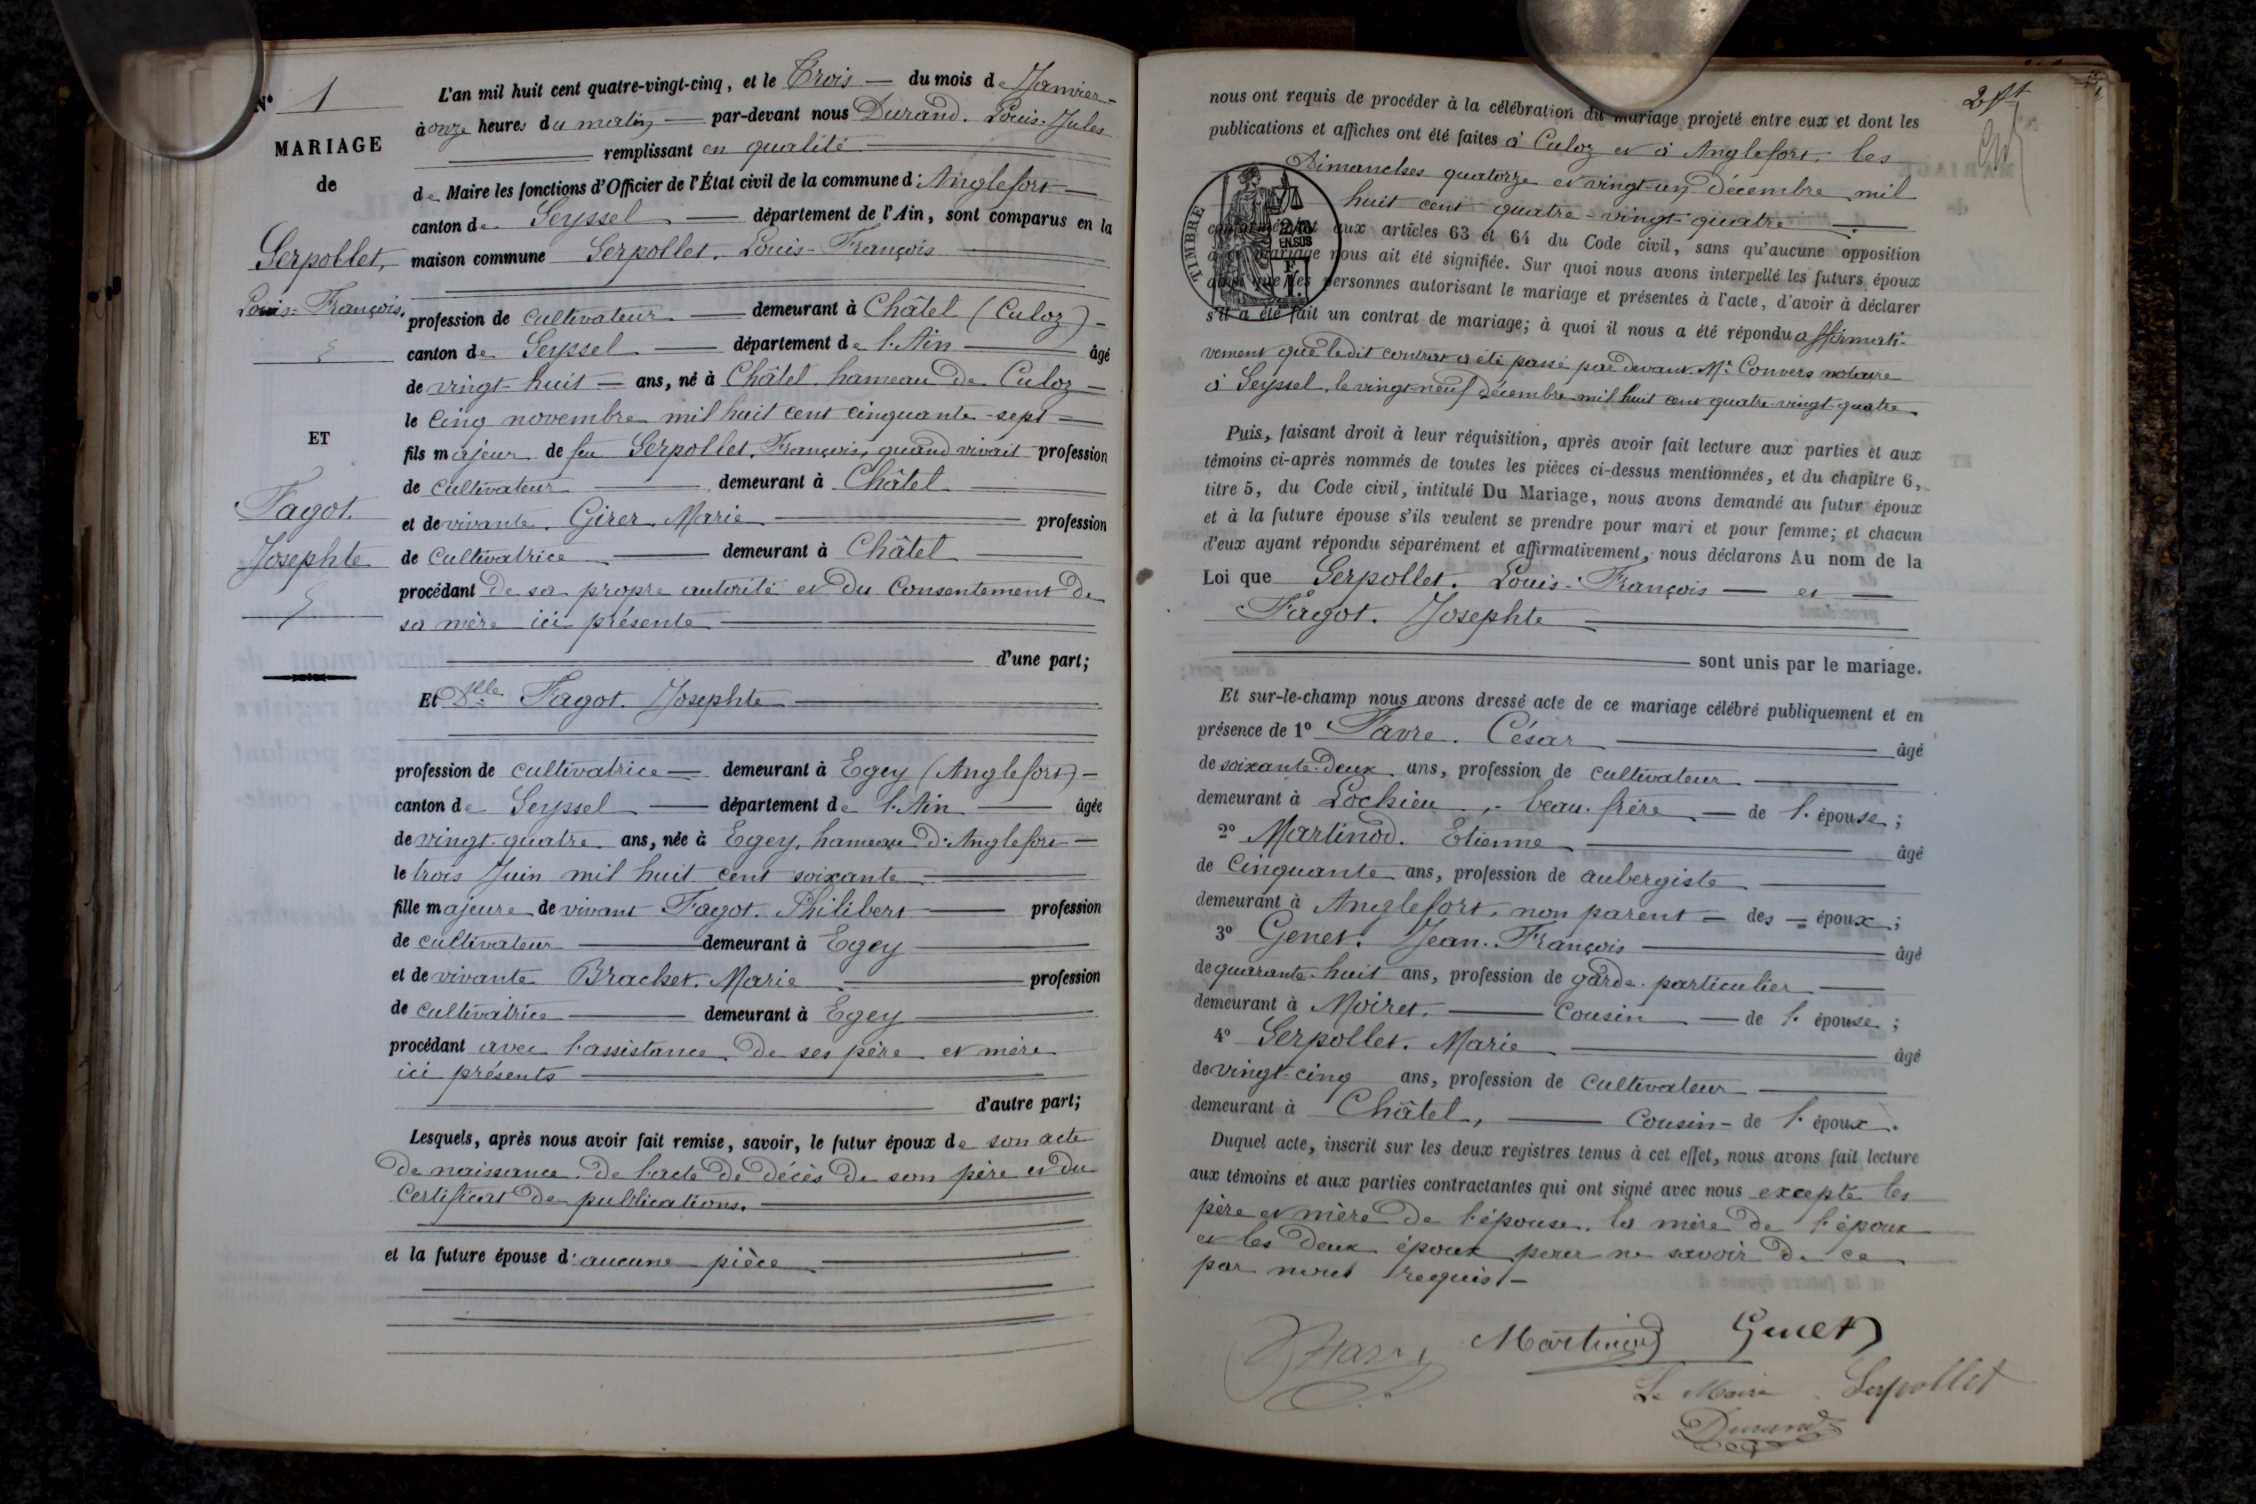 N° 1
MARIAGE
de
Serpollet,
Louis-François.
ET
Fagot.
Josephte
L'an mil huit cent quatre-vingt-cinq, et le Trois du mois de Janvier
à onze heures du matin par-devant nous Durand. Louis-Jules
remplissant en qualité
de Maire les fonctions d'Officier de l'État civil de la commune d'Anglefort
canton de Seyssel département de l'Ain, sont comparus en la
maison commune Serpollet. Louis-François
profession de cultivateur demeurant à Châtel (Culoz)
canton de Seyssel département de l'Ain âgé
de vingt-huit ans, né à Châtel hameau de Culoz
le cinq novembre mil huit cent cinquante-sept
fils majeur de feu Serpollet. François, quand vivait profession
de cultivateur demeurant à Châtel
et de vivante. Girer. Marie profession
de cultivatrice demeurant à Châtel
procédant de sa propre autorité et du consentement de
sa mère ici présente
d'une part;
Et Dlle Fagot. Josephte
profession de cultivatrice demeurant à Egey (Anglefort)
canton de Seyssel département de l'Ain âgée
de vingt-quatre ans, née à Egey, hameau d'Anglefort
le trois Juin mil huit cent soixante
fille majeure de vivant Fagot. Philibert profession
de cultivateur demeurant à Egey
et de vivante Brachet. Marie profession
de cultivatrice demeurant à Egey
procédant avec l'assistance de ses père et mère
ici présents
d'autre part;
Lesquels, après nous avoir fait remise, savoir, le futur époux de son acte
de naissance. de l'acte de décès de son père et du
certificat de publications.
et la future épouse d'aucune pièce
2 f.t
nous ont requis de procéder à la célébration du mariage projeté entre eux et dont les
publications et affiches ont été faites à Culoz et à Anglefort. les
Dimanches quatorze et vingt-un décembre mil
huit cent quatre-vingt-quatre
conformément aux articles 63 et 64 du Code civil, sans qu'aucune opposition
à ce mariage nous ait été signifiée. Sur quoi nous avons interpellé les futurs époux
ainsi que les personnes autorisant le mariage et présentes à l'acte, d'avoir à déclarer
s'il a été fait un contrat de mariage; à quoi il nous a été répondu affirmati-
vement que ledit contrat a été passé par devant Me Convers notaire
à Seyssel, le vingt-neuf décembre mil huit cent quatre-vingt-quatre
TIMBRE
2/10
EN SUS
F
1
Puis, faisant droit à leur réquisition, après avoir fait lecture aux parties et aux
témoins ci-après nommés de toutes les pièces ci-dessus mentionnées, et du chapitre 6,
titre 5, du Code civil, intitulé Du Mariage, nous avons demandé au futur époux
et à la future épouse s'ils veulent se prendre pour mari et pour femme; et chacun
d'eux ayant répondu séparément et affirmativement, nous déclarons Au nom de la
Loi que Serpollet. Louis-François et
Fagot. Josephte
sont unis par le mariage.
Et sur-le-champ nous avons dressé acte de ce mariage célébré publiquement et en
présence de 1° Favre. César âgé
de soixante-deux ans, profession de cultivateur
demeurant à Lochieu, beau-frère de l'épouse;
2° Martinod. Etienne âgé
de cinquante ans, profession de aubergiste
demeurant à Anglefort, non parent des époux;
3° Genet. Jean-François âgé
de quarante-huit ans, profession de garde particulier
demeurant à Moiret. cousin de l'épouse;
4° Serpollet. Marie âgé
de vingt-cinq ans, profession de cultivateur
demeurant à Châtel, cousin de l'époux.
Duquel acte, inscrit sur les deux registres tenus à cet effet, nous avons fait lecture
aux témoins et aux parties contractantes qui ont signé avec nous excepté les
père et mère de l'épouse. la mère de l'époux
et les deux époux pour ne savoir de ce
par nous requis
Martinod Genet
Le Maire Serpollet
Durand